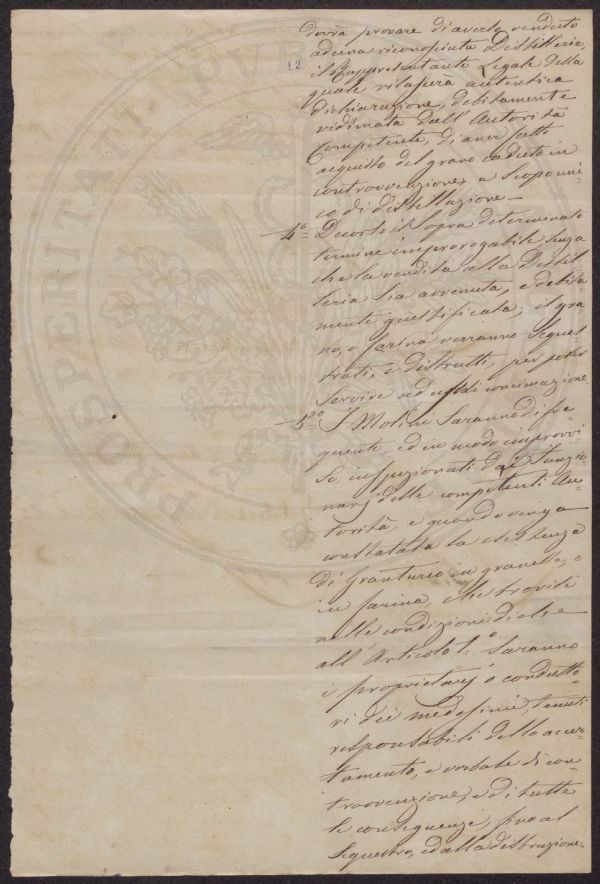 dovrà provare di averlo venduto
ad una riconosciuta Distilleria,
12
il Rappresentante Legale della
quale rilascerà autentica
dichiarazione, debitamente
vidimata dall'Autorità
competente, di aver fatt
acquisto del grano caduto in
controvvenzione, a scopo uni=
co di distillazione.
4.° Decorso il sopra determinato
termine improrogabile, senza
che la vendita alla Distil=
leria sia avvenuta, e debita
mente giustificata; il gra=
no, o farina verranno seques
trati, e distrutti, per poter
servire ad usi di concimazione.
5.° I Molini saranno di fre=
quente, ed in modo improvvi=
so, inspezionati dai Funzio=
narj delle competenti Au=
torità, e quando venga
constatata la esistenza
di Granturco in granello, o
in farina, che trovisi
nelle condizioni di che
all'Articolo 1.° saranno
i proprietarj o condutto=
ri dei medesimi, tenuti
responsabili dello accer=
tamento, e verbale di con=
trovvenzione, e di tutte
le conseguenze, fino al
sequestro, ed alla distruzione.
PROSPERITATI PVBL